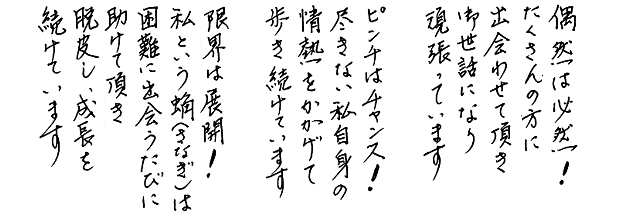 偶然は必然！
たくさんの方に
出会わせて頂き
御世話になり
頑張っています
ピンチはチャンス！
尽きない私自身の
情熱をかかげて
歩き続けています
限界は展開！
私という蛹（きなぎ）は
困難に出会うたびに
助けて頂き
脱皮し、成長を
続けています